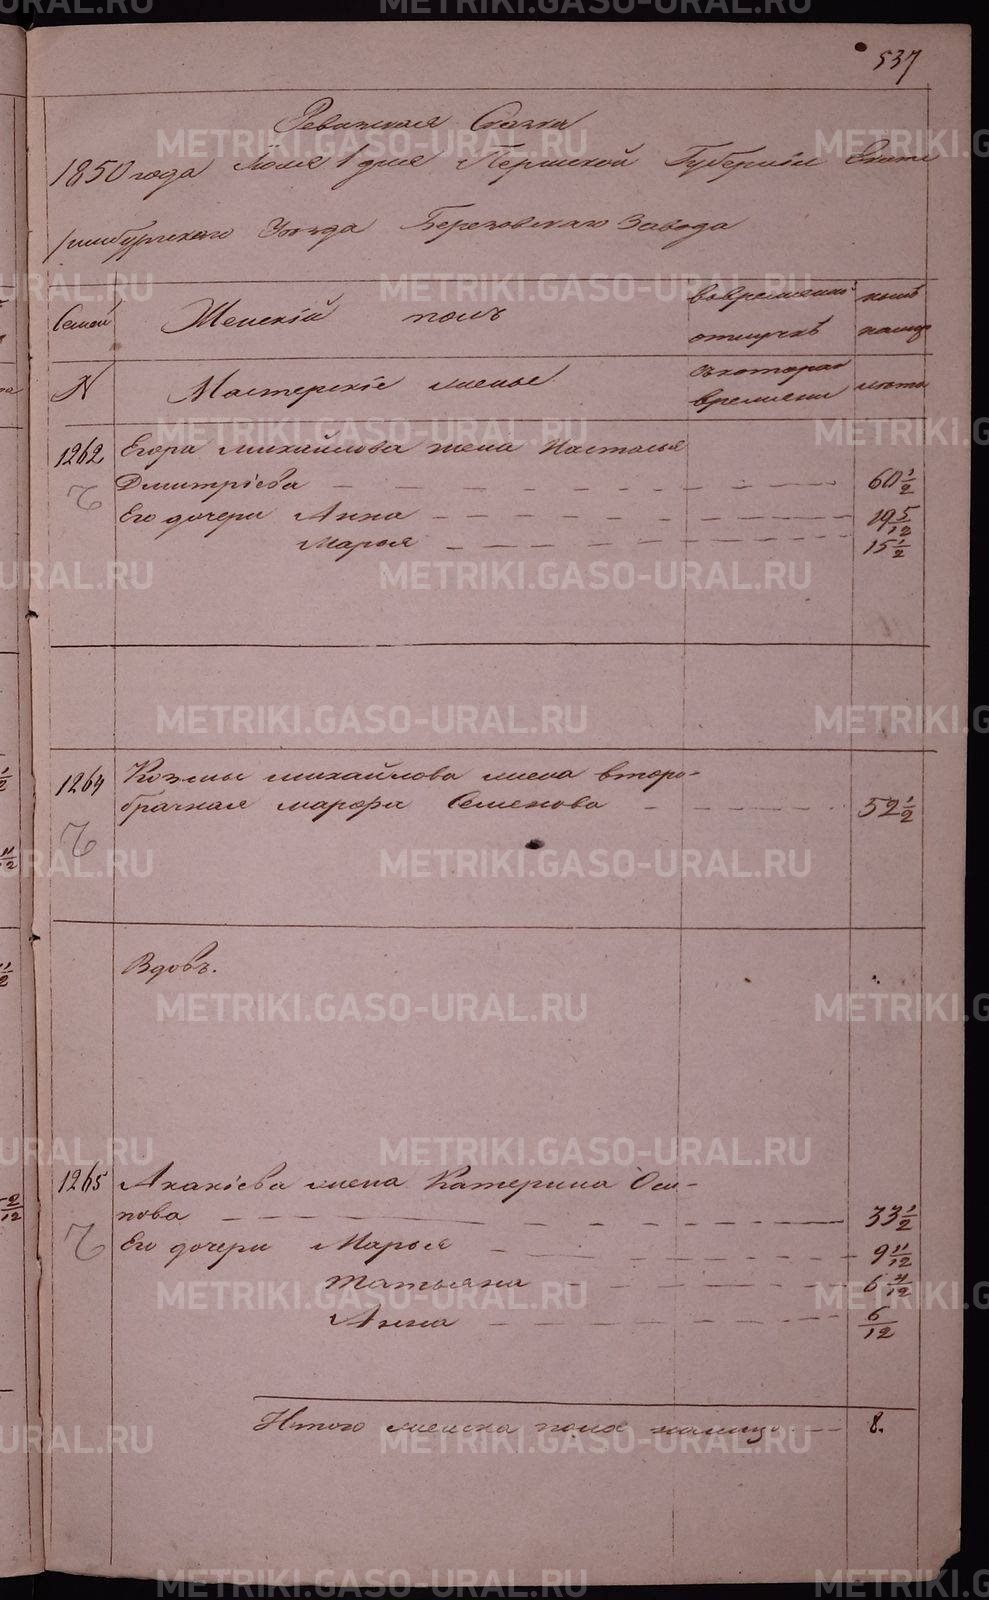 537
Ревизская Сказка
1850 года Июля 1 дня Пермской Губернии Екате
ринбургскаго Уезда Березовскаго Завода
Семей
Женскій полъ
во временной
ныне
отлучке
налицо
N
Мастерскіе жены
съ котораго
лета
времени
1262
Егора Михайлова жена Настасья
Дмитріева
60 1/2
Его дочери Анна
19 5/12
Марья
15 1/2
1264
Козмы Михайлова жена второ-
брачная Марфа Семенова
52 1/2
Вдовъ.
1265
Акакіева жена Катерина Оси-
пова
33 1/2
Его дочери Марья
9 11/12
Татьяна
6 4/12
Анна
6/12
Итого женска пола налицо
8.
METRIKI.GASO-URAL.RU